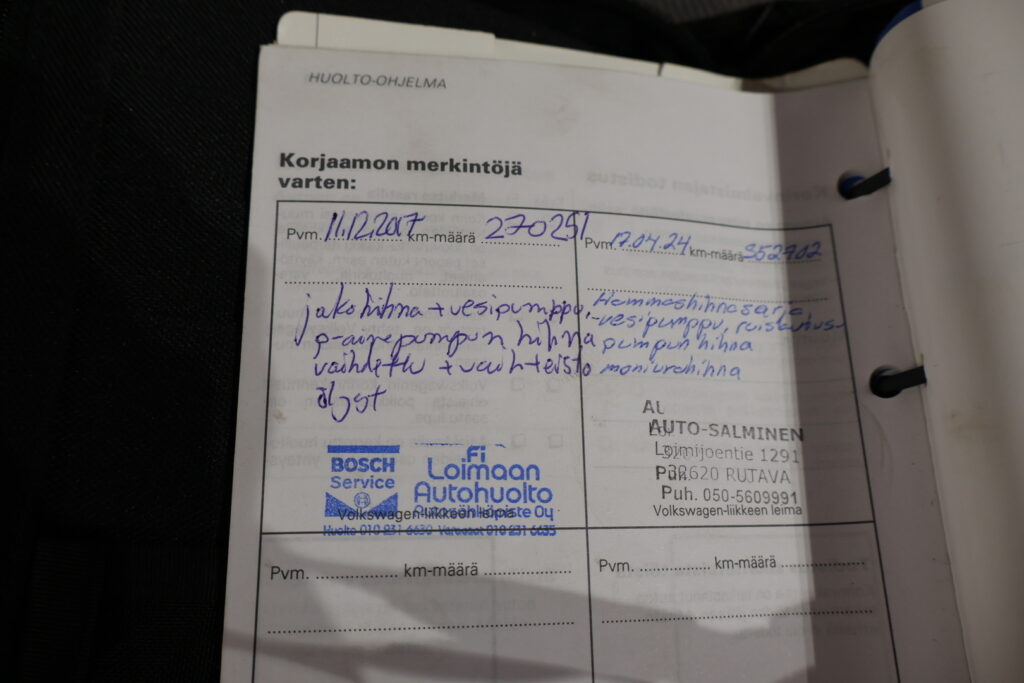 HUOLTO-OHJELMA
Korjaamon merkintöjä
varten:
Pvm. 11.12.2017 km-määrä 270251
jakohihna + vesipumppu,
p-ainepumpun hihna
vaihdettu + vaihteisto
öljyt
BOSCH
Service
Fi
Loimaan
Autohuolto
Autosähköpiste Oy
Volkswagen-liikkeen leima
Huolto 010 231 6630 Varaosat 010 231 6635
Pvm. 17.04.24 km-määrä 352702
Hammashihnasarja,
-vesipumppu, ruiskutus-
pumpun hihna
moniurahihna
AUTO-SALMINEN
Loimijoentie 1291
32620 RUTAVA
Puh. 050-5609991
Volkswagen-liikkeen leima
Pvm. km-määrä
Pvm. km-määrä